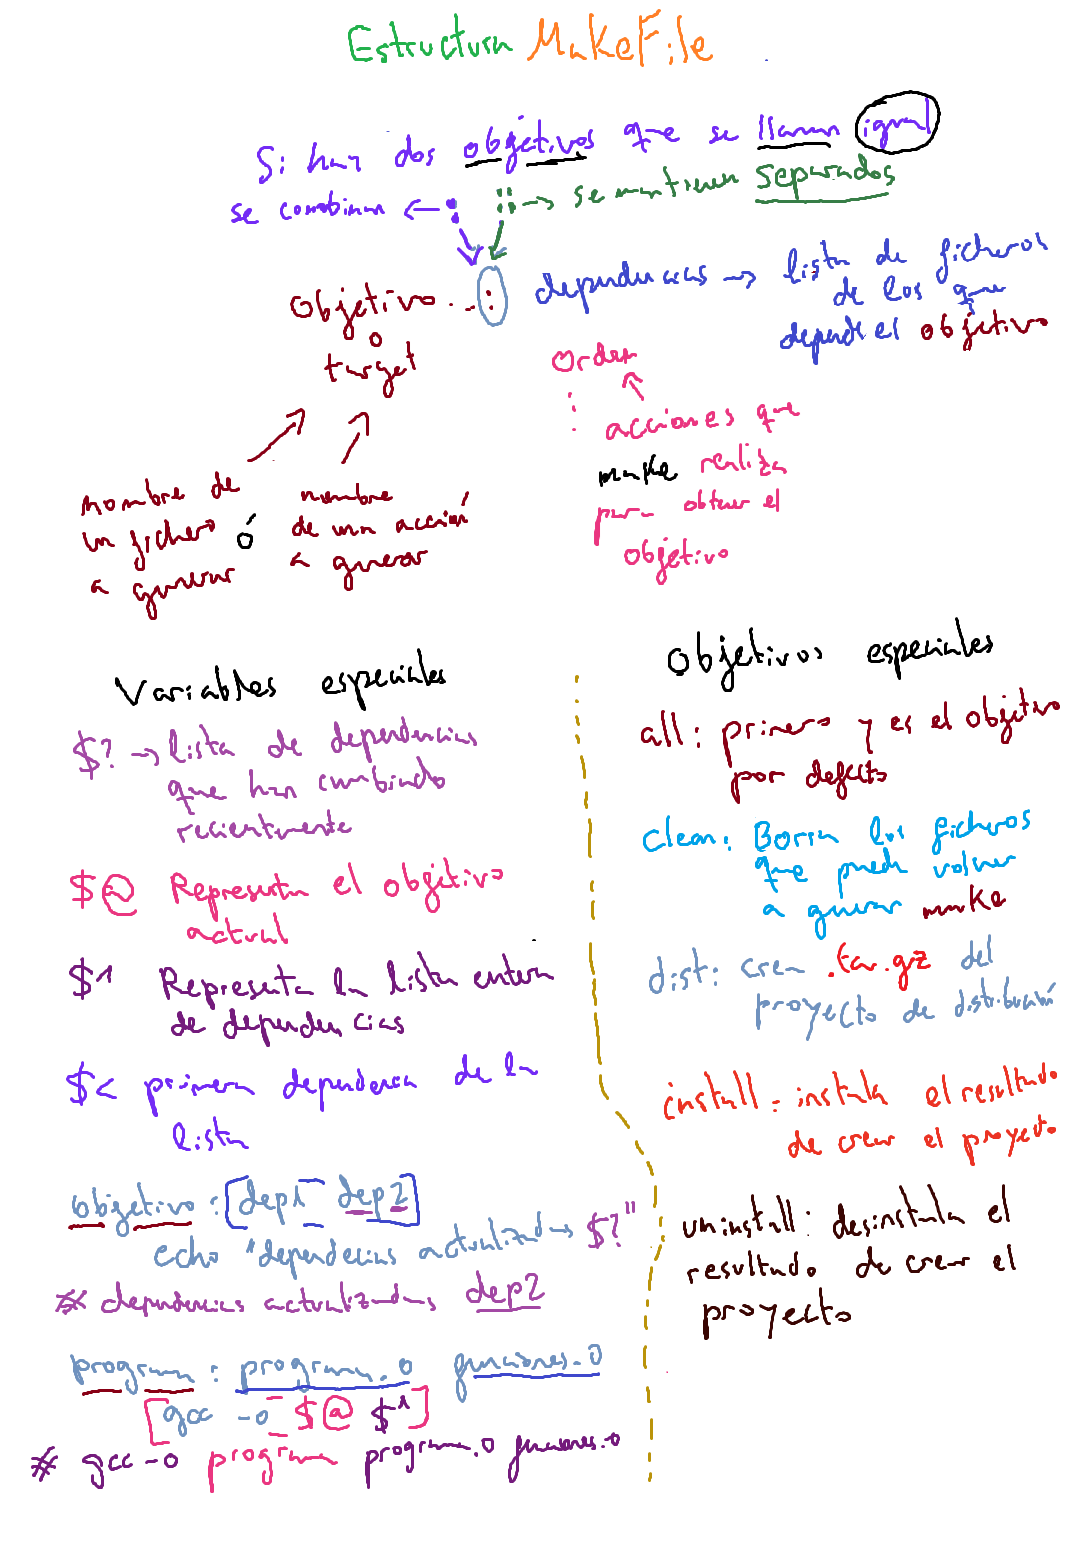 Estructura MakeFile
Si hay dos objetivos que se llaman igual
se combinan ← : :: → se mantienen separados
objetivo .. : dependencias → lista de ficheros
de los que
depende el objetivo
o
target
orden
acciones que
make realiza
para obtener el
objetivo
nombre de
un fichero ó
a generar
nombre
de una acción
a generar
Variables especiales
$? → lista de dependencias
que han cambiado
recientemente
$@ Representa el objetivo
actual
$^ Representa la lista entera
de dependencias
$< primera dependencia de la
lista
objetivo : dep1 dep2
echo "dependecias actualizad → $?"
# dependencias actualizadas dep2
programa : programa.o funciones.o
gcc -o $@ $^
# gcc -o programa programa.o funciones.o
Objetivos especiales
all : primero y es el objetivo
por defecto
clean : Borra los ficheros
que puede volver
a generar make
dist : crea .tar.gz del
proyecto de distribución
install : instala el resultado
de crear el proyecto
uninstall : desinstala el
resultado de crear el
proyecto